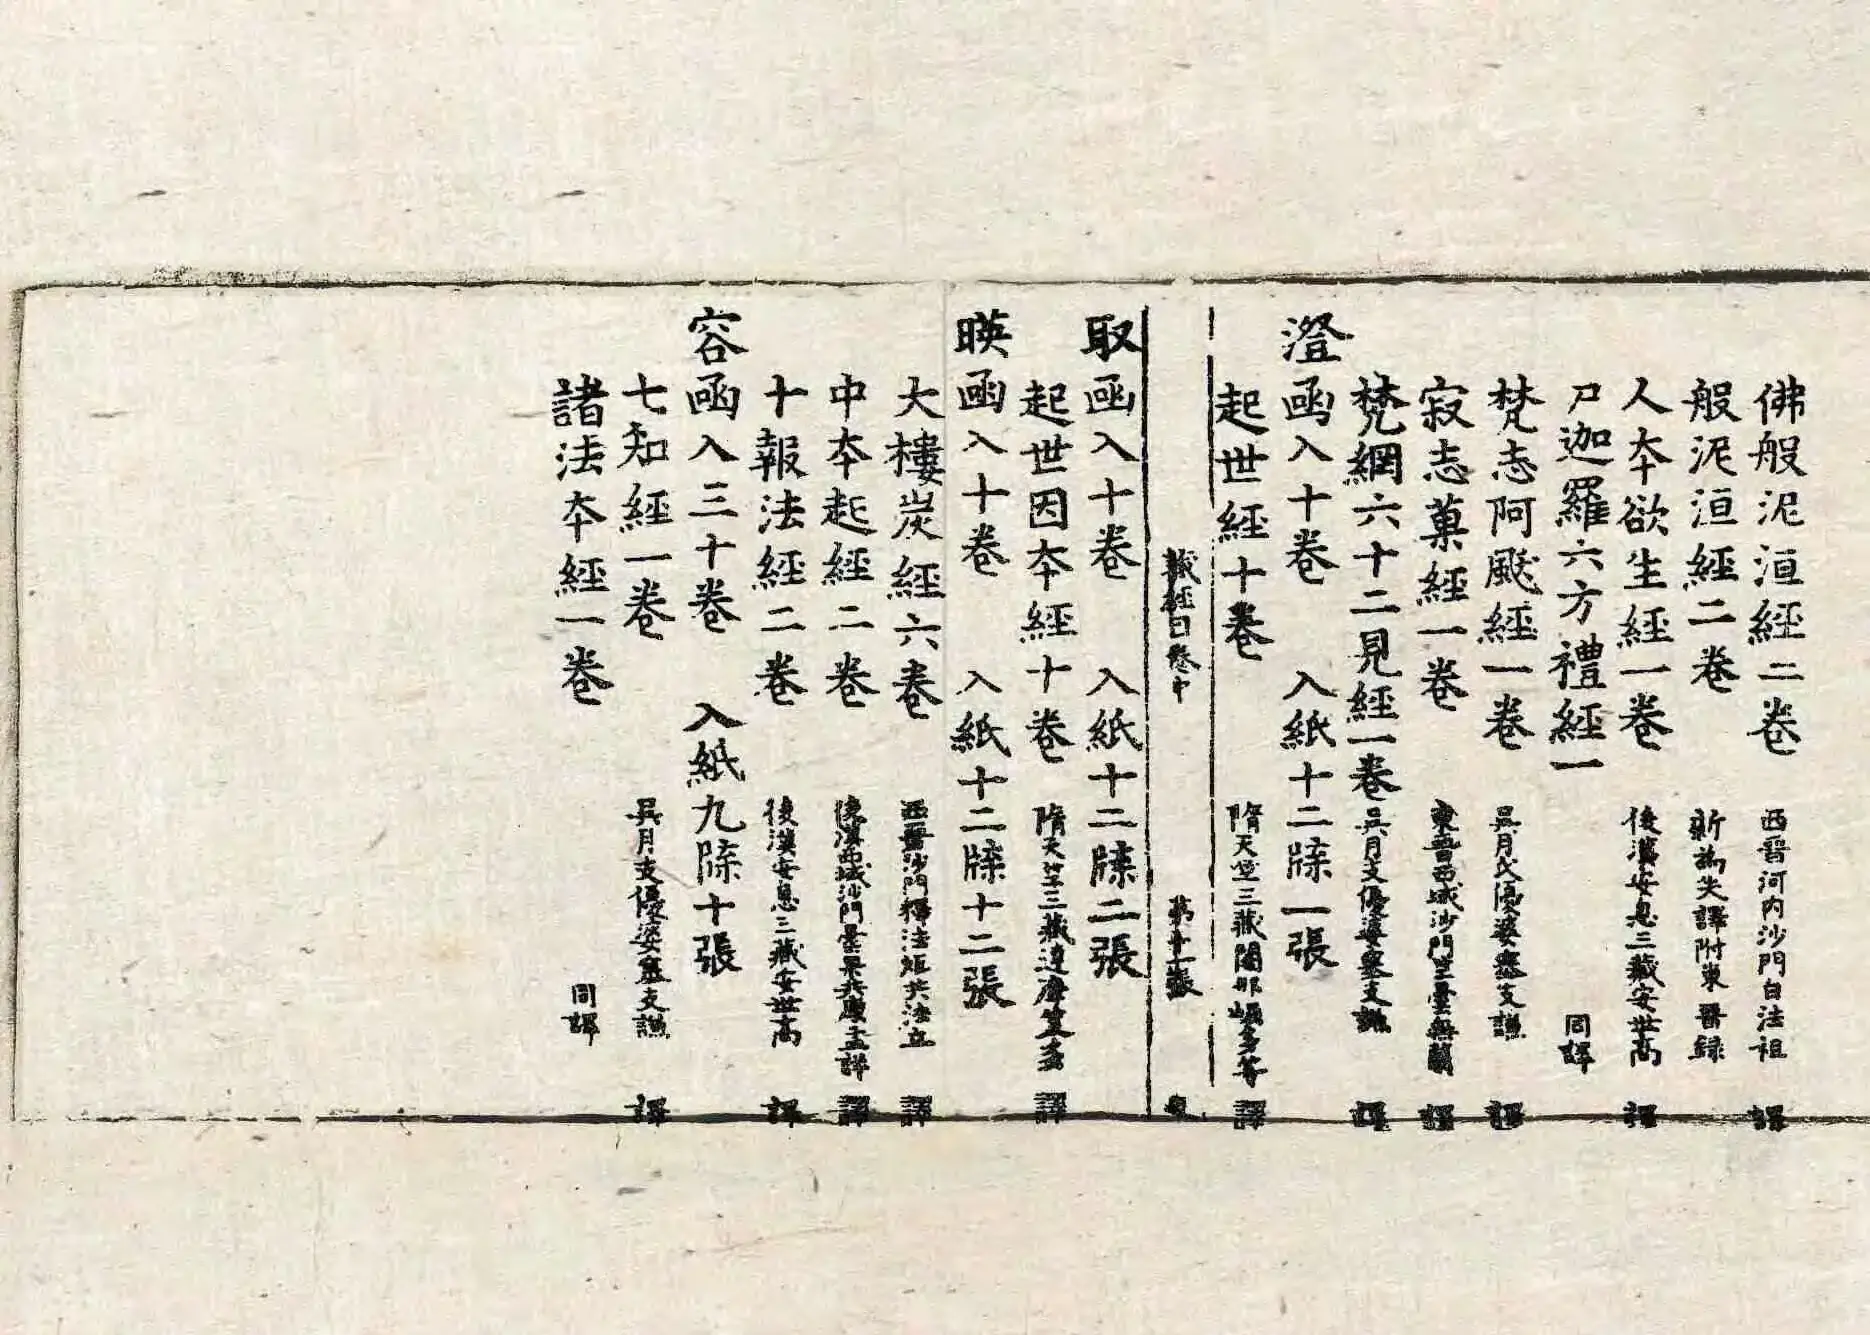 佛般泥洹經二卷 西晉河内沙門白法祖 譯
般泥洹經二卷 新為失譯附東晉録
人夲欲生經一卷 後漢安息三藏安世髙 譯
尸迦羅六方禮經一 同譯
梵志阿颰經一卷 吴月氏優婆塞支謙 譯
寂志菓經一卷 東晉西域沙門竺曇無蘭 譯
梵網六十二見經一卷 吴月支優婆塞支謙 譯
澄函入十卷 入紙十二牒一張
起世經十卷 隋天竺三藏闍那崛多等 譯
藏經目卷中 第十一張
取函入十卷 入紙十二牒二張
起世因夲經十卷 隋天竺三藏達摩笈多 譯
暎函入十卷 入紙十二牒十二張
大樓炭經六卷 西晉沙門釋法炬共法立 譯
中夲起經二卷 後漢西域沙門曇果共康孟詳 譯
十報法經二卷 後漢安息三藏安世髙 譯
容函入三十卷 入紙九牒十張
七知經一卷 吴月支優婆塞支謙 譯
諸法夲經一卷 同譯